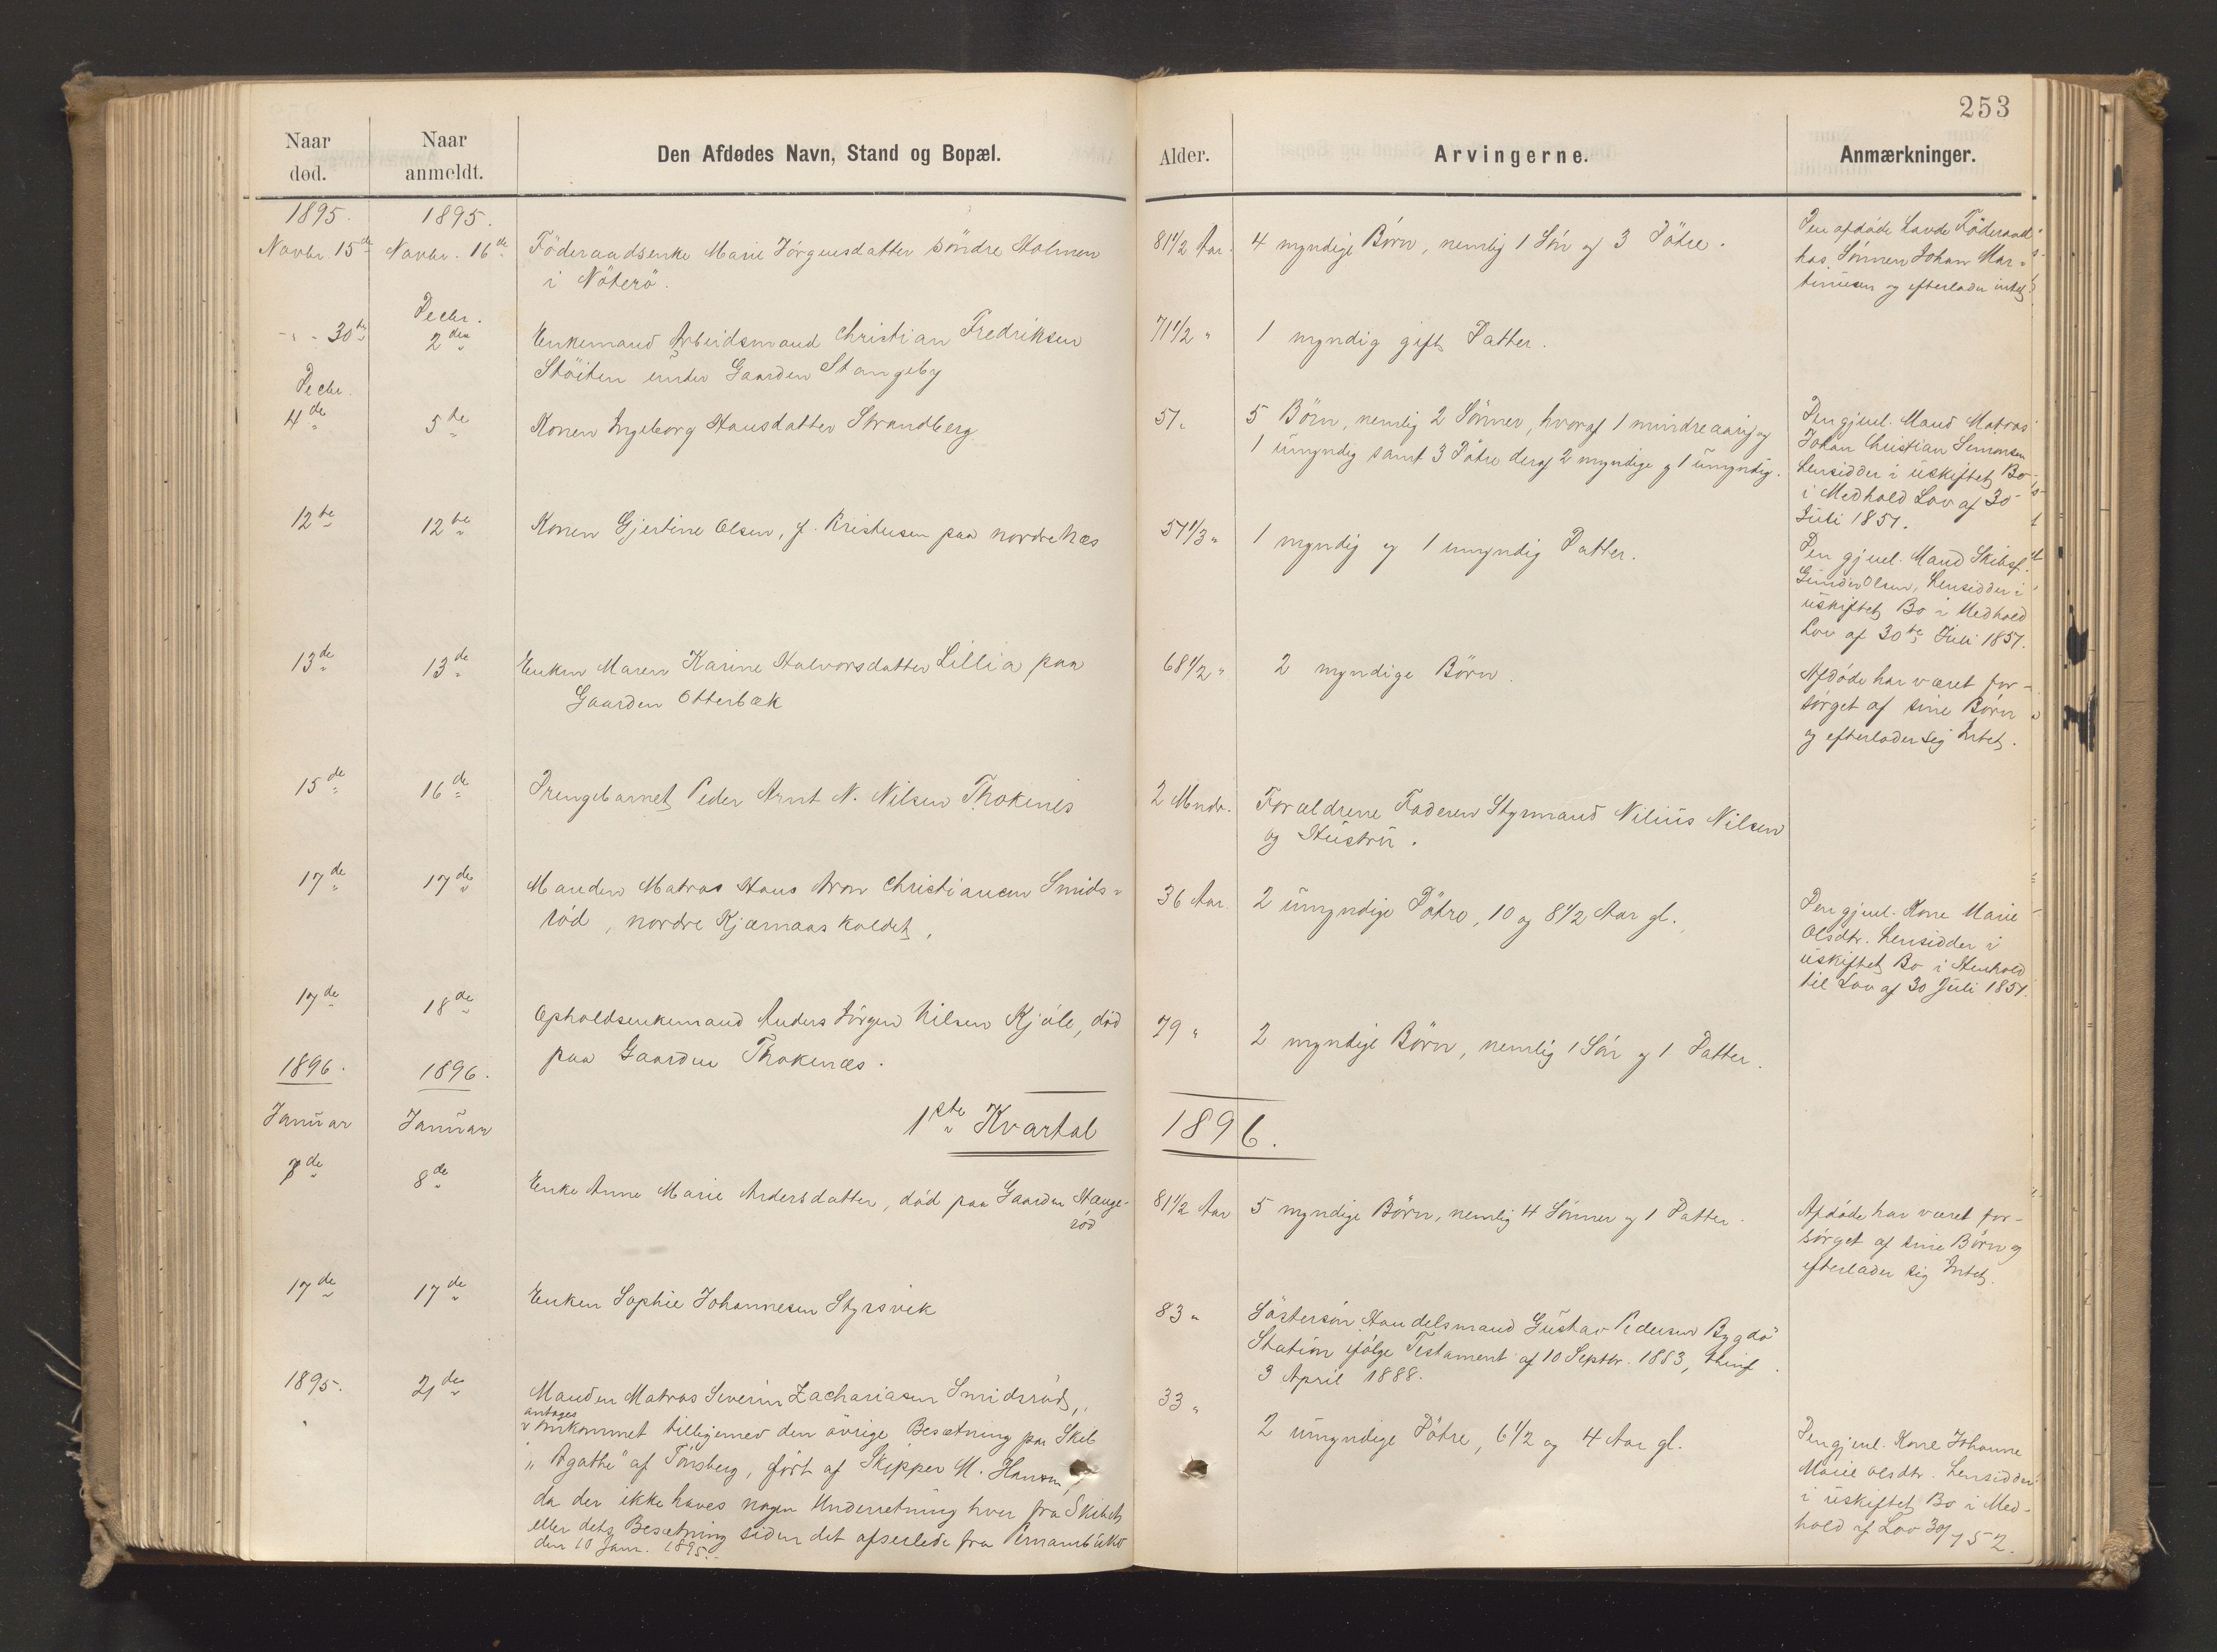 253
Naar død.
Naar anmeldt.
Den Afdødes Navn, Stand og Bopæl.
Alder.
Arvingerne.
Anmærkninger.
1895.
1895.
Novbr. 15de
Novbr. 16de
Föderaadsenke Marie Jörgensdatter söndre Holmen
i Nöterö.
81 1/2 Aar.
4 myndige Börn, nemlig 1 Sön og 3 Dötre.
Den afdøde havde Föderaad
hos Sönnen Johan Mar-
tinusen og efterlader intet.
" - 30te
Decbr.
2den
Enkemand Arbeidsmand Christian Fredriksen
Stöiten under Gaarden Stangeby
71 1/2 "
1 myndig gift Datter.
Decbr.
4de
5te
Konen Ingeborg Hansdatter Strandberg
51 "
5 Börn, nemlig 2 Sönner, hvoraf 1 mindreaarig og
1 umyndig samt 3 Dötre deraf 2 myndige og 1 umyndig.
Den gjenl. Mand Matros
Johan Christian Simonsen
hensidder i uskiftet Bo
i Medhold Lov af 30
Juli 1851.
12te
12te
Konen Gjertine Olsen, f. Kristensen paa nordre Næs
51 1/3 "
1 myndig og 1 umyndig Datter.
Den gjenl. Mand Skibsf.
Gunder Olsen, hensidder i
uskiftet Bo i Medhold
Lov af 30te Juli 1851.
13de
13de
Enken Maren Karine Halvorsdatter Lillia paa
Gaarden Otterbæk
68 1/2 "
2 myndige Börn.
Afdøde har været for-
sørget af sine Börn
og efterlader sig Intet.
15de
16de
Drengebarnet Peder Arnt N. Nilsen Thokenes
2 Mndr.
Forældrene Faderen Styrmand Nilius Nilsen
og Hustru.
17de
17de
Manden Matros Hans Aron Christiansen Smids-
röd, nordre Kjærnaas kaldet.
36 Aar.
2 umyndige Dötre, 10 og 8 1/2 Aar gl.
Den gjenl. Kone Marie
Olsdtr. hensidder i
uskiftet Bo i Henhold
til Lov af 30 Juli 1851.
17de
18de
Opholdsenkemand Anders Jörgen Nilsen Kjöle, död
paa Gaarden Thokenæs.
79 "
2 myndige Börn, nemlig 1 Sön og 1 Datter.
1896.
1896.
Januar
Januar
1ste Kvartal
1896.
7de
8de
Enke Anne Marie Andersdatter, död paa Gaarden Stange-
röd
81 1/2 Aar
5 myndige Börn, nemlig 4 Sönner og 1 Datter.
Afdøde har været for-
sørget af sine Börn og
efterlader sig Intet.
17de
17de
Enken Sophie Johannesen Styrsvik
83 "
Söstersön Handelsmand Gustav Pedersen Bygdö
Station ifölge Testament af 10 Septbr. 1883,
3 April 1888.
1895.
21de
Manden Matros Severin Zachariasen Smidsröd,
antages
omkommet tilligemed den övrige Besætning paa Skib
"Agathe" af Tönsberg, fört af Skipper M. Hansen,
da der ikke haves nogen Underretning hver fra Skibet
eller dets Besætning siden det afseilede fra Pernambuko
den 10 Janr. 1895.
33 "
2 umyndige Dötre, 6 1/2 og 4 Aar gl.
Den gjenl. Kone Johanne
Marie Olsdtr. hensidder
i uskiftet Bo i Med-
hold af Lov 30/7 52.